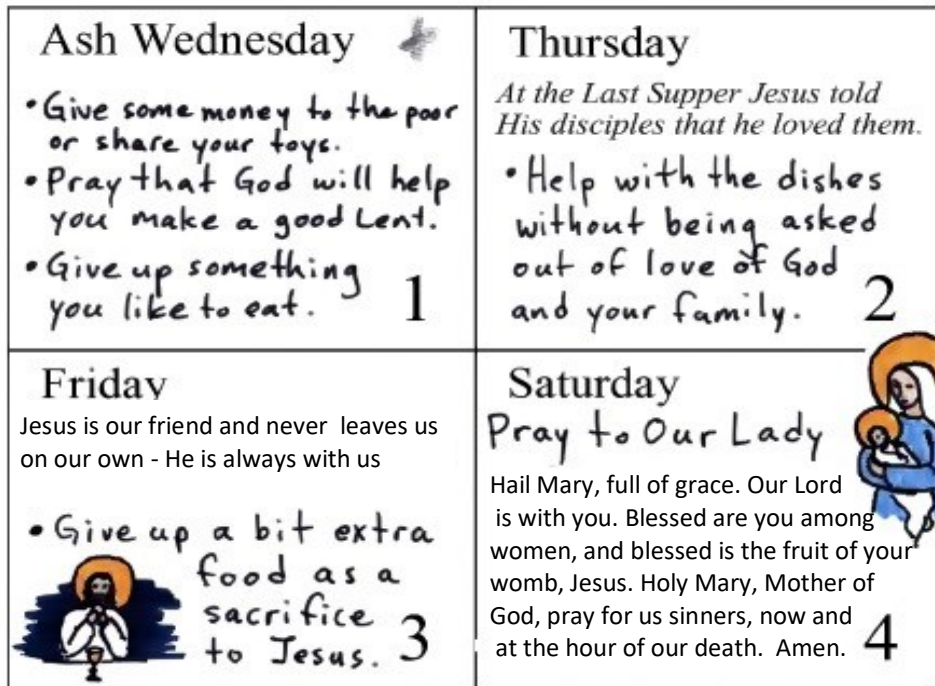 Ash Wednesday
• Give some money to the poor
or share your toys.
• Pray that God will help
you make a good Lent.
• Give up something
you like to eat.
1
Thursday
At the Last Supper Jesus told
His disciples that he loved them.
• Help with the dishes
without being asked
out of love of God
and your family.
2
Friday
Jesus is our friend and never leaves us
on our own - He is always with us
• Give up a bit extra
food as a
sacrifice
to Jesus.
3
Saturday
Pray to Our Lady
Hail Mary, full of grace. Our Lord
is with you. Blessed are you among
women, and blessed is the fruit of your
womb, Jesus. Holy Mary, Mother of
God, pray for us sinners, now and
at the hour of our death. Amen.
4